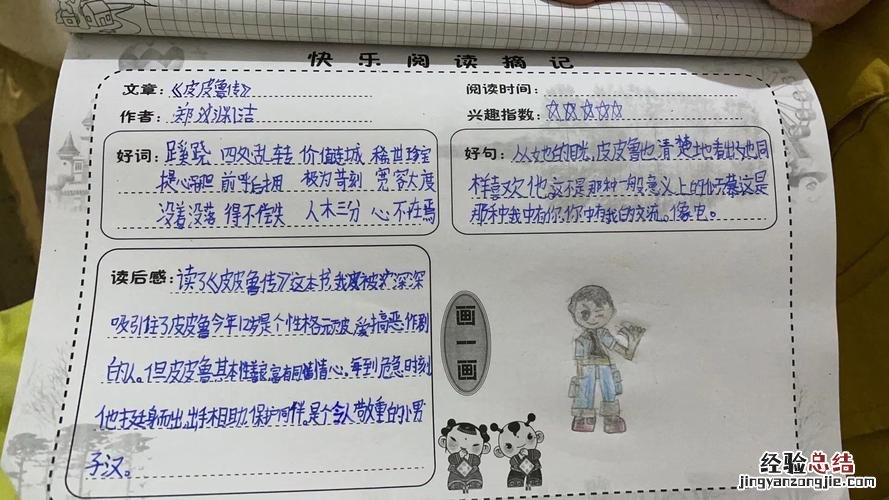 快乐阅读摘记
文章：《皮皮鲁传》
阅读时间：
作者：郑渊洁
兴趣指数：☆☆☆☆☆
好词：蹊跷 四处乱转 价值连城 稀世珍宝
提心吊胆 前呼后拥 极为苛刻 宽容大度
没着没落 得不偿失 入木三分 心不在焉
好句：从她的目光，皮皮鲁也清楚地看出她同
样喜欢他，这不是那种一般意义上的，这是
那种我中有你，你中有我的交流。像电。
读后感：读了《皮皮鲁传》这本书，我被深深
吸引住了皮皮鲁今年12岁是个性格顽皮，爱搞恶作剧
的人。但皮皮鲁其本性善良富有同情心。每到危急时刻
他挺身而出，出手相助，保护同伴。是个令人敬重的小男
子汉。
画一画
经验总结
jingyanzongjie.com